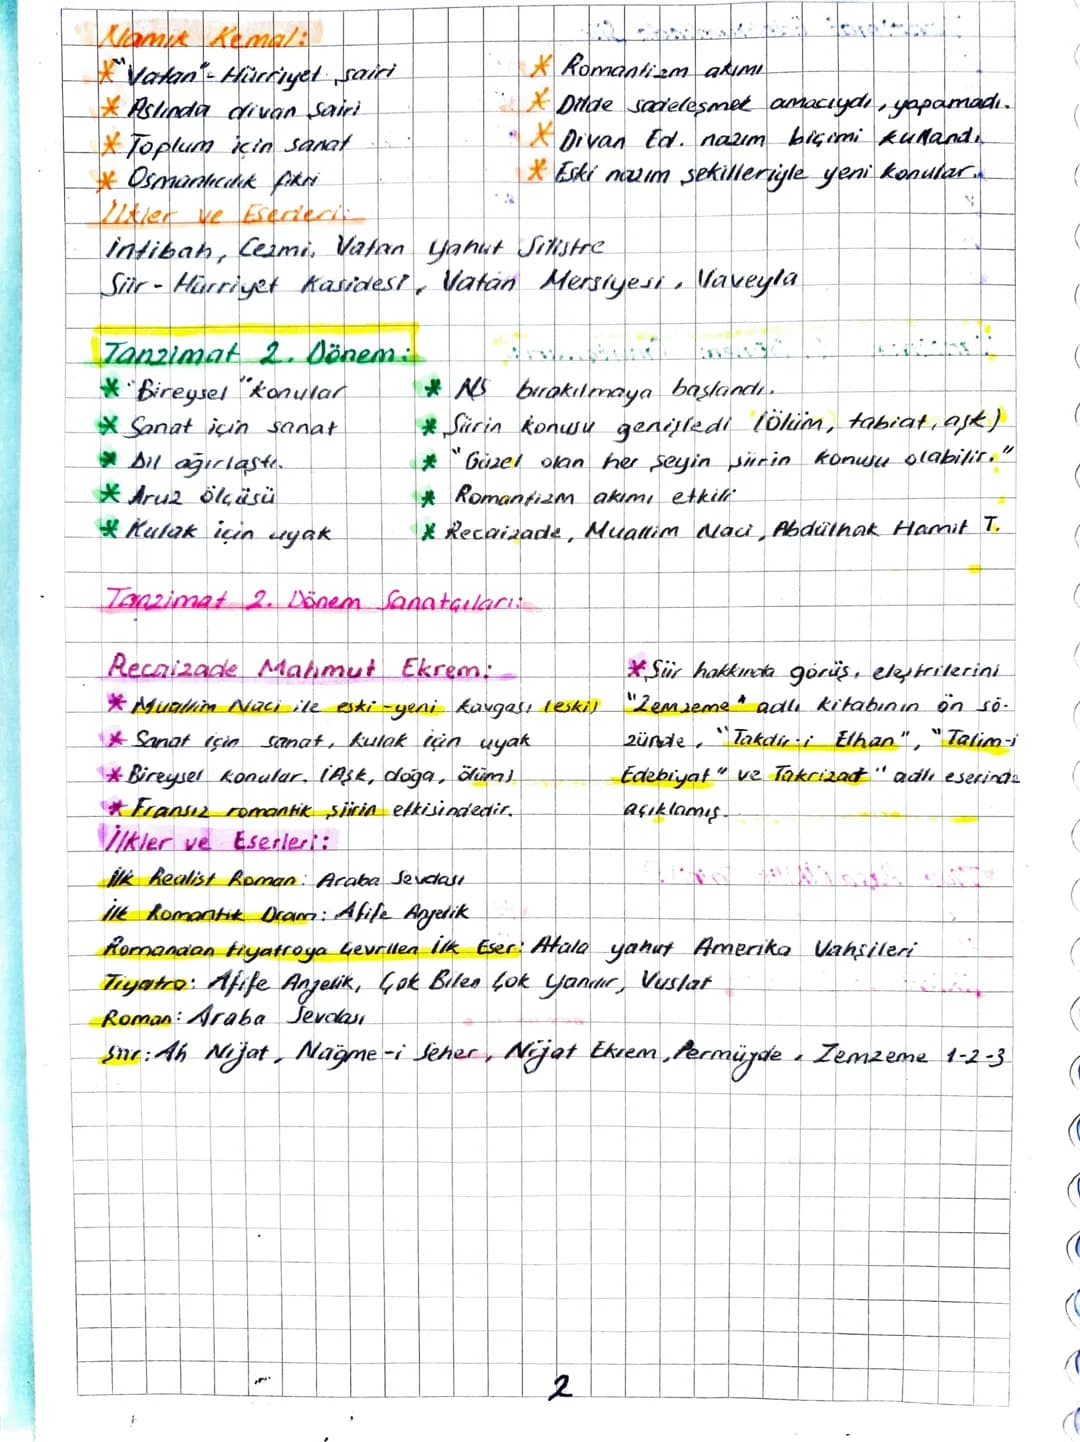 Namık Kemal:
* "Vatan" - Hürriyet şairi
* Aslında divan şairi
* Toplum için sanat
* Osmanlıcılık fikri
* Romantizm akımı
* Dilde sadeleşmek amacıydı, yapamadı.
* Divan Ed. nazım biçimi kullandı.
* Eski nazım şekilleriyle yeni konular.
İlkler ve Eserleri:
İntibah, Cezmi, Vatan yahut Silistre
Şiir - Hürriyet Kasidesi, Vatan Mersiyesi, Vaveyla
Tanzimat 2. Dönem:
* "Bireysel" konular
* Sanat için sanat
* Dil ağırlaştı.
* Aruz ölçüsü
* Kulak için uyak
* NŞ bırakılmaya başlandı.
* Şiirin konusu genişledi (ölüm, tabiat, aşk)
* "Güzel olan her şeyin şiirin konusu olabilir."
* Romantizm akımı etkili
* Recaizade, Muallim Naci, Abdülhak Hamit T.
Tanzimat 2. Dönem Sanatçıları:
Recaizade Mahmut Ekrem:
* Muallim Naci ile eski-yeni kavgası (eski)
* Sanat için sanat, kulak için uyak
* Bireysel konular. (Aşk, doğa, ölüm)
* Fransız romantik şiirin etkisindedir.
* Şiir hakkında görüş, eleştrilerini
"Zemzeme" adlı kitabının ön sö-
zünde, "Takdir-i Elhan", "Talim-i
Edebiyat" ve Takrizat" adlı eserinde
açıklamış.
İlkler ve Eserleri:
İlk Realist Roman: Araba Sevdası
İlk Romantik Dram: Afife Anjelik
Romandan tiyatroya Çevrilen İlk Eser: Atala yahut Amerika Vahşileri
Tiyatro: Afife Anjelik, Çok Bilen Çok Yanılır, Vuslat
Roman: Araba Sevdası
Şiir: Ah Nijat, Nağme-i Seher, Nijat Ekrem, Pejmürde, Zemzeme 1-2-3
2